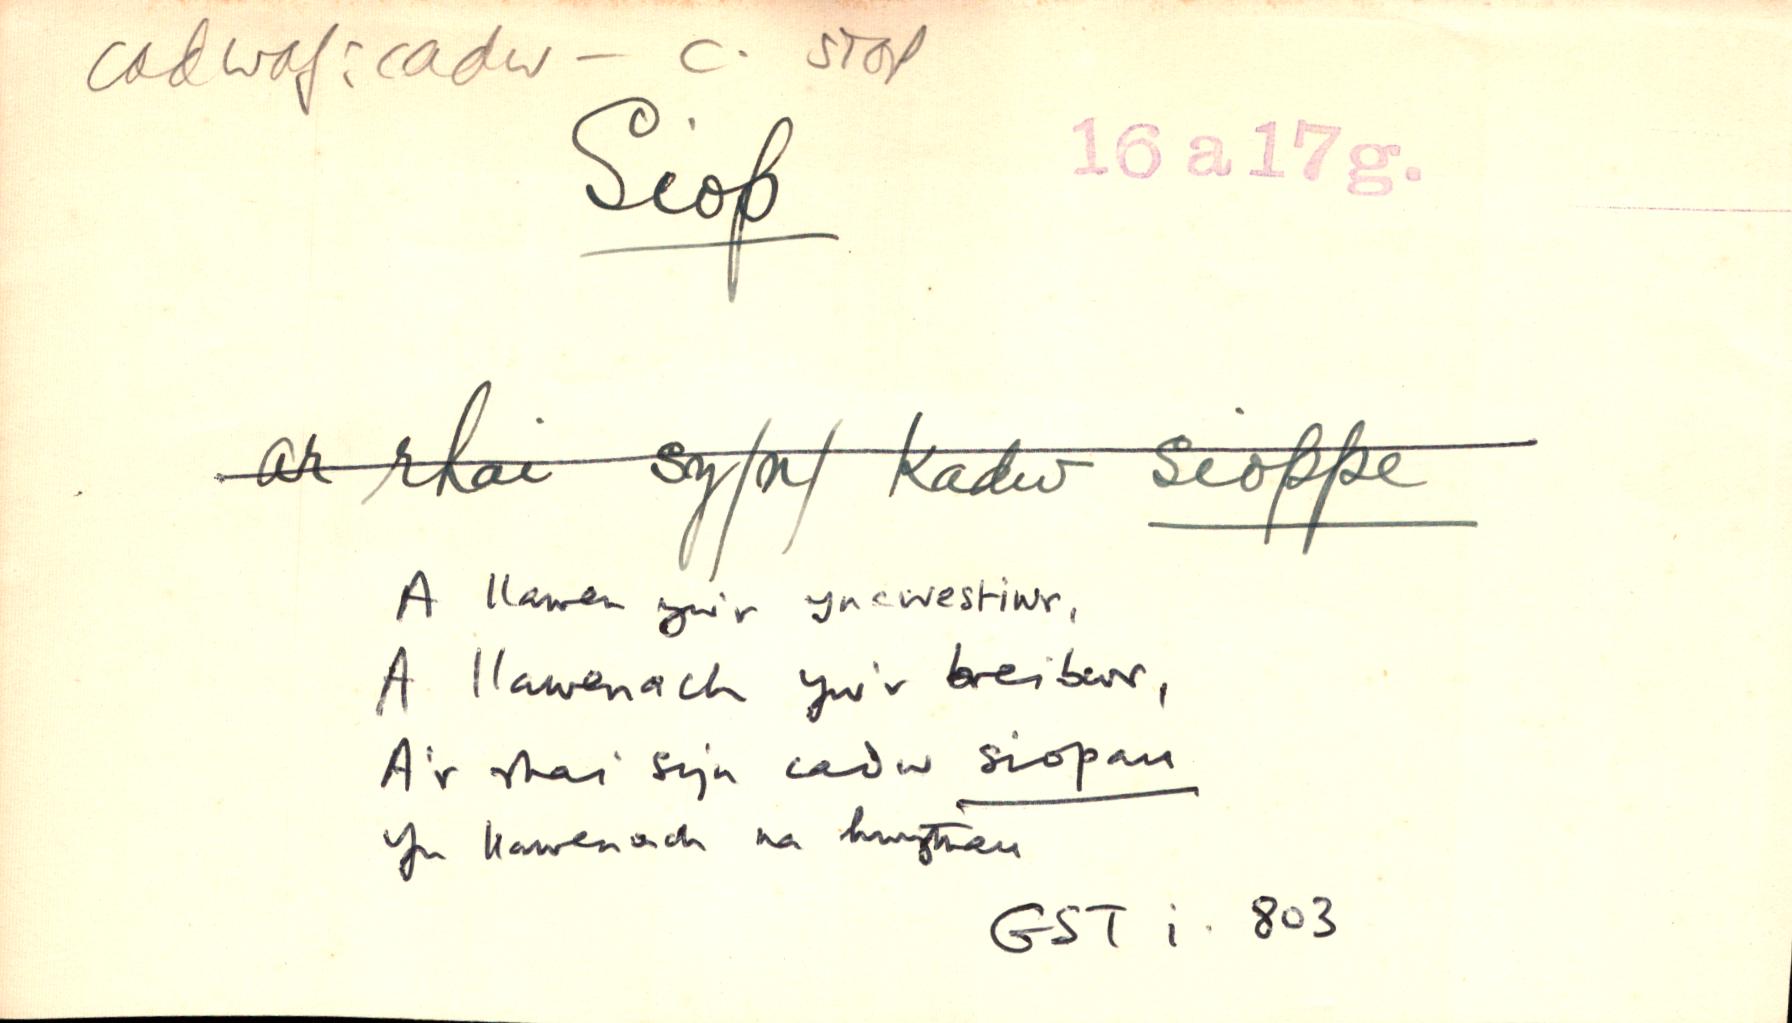 cadwaf: cadw – c. siop
Siop
16 a 17g.
ar rhai sy/n/ kadw sioppe
A llawen yw'r yncwestiwr,
A llawenach yw'r breibwr,
A'r rhai sy'n cadw siopau
Yn llawenach na
GST i. 803